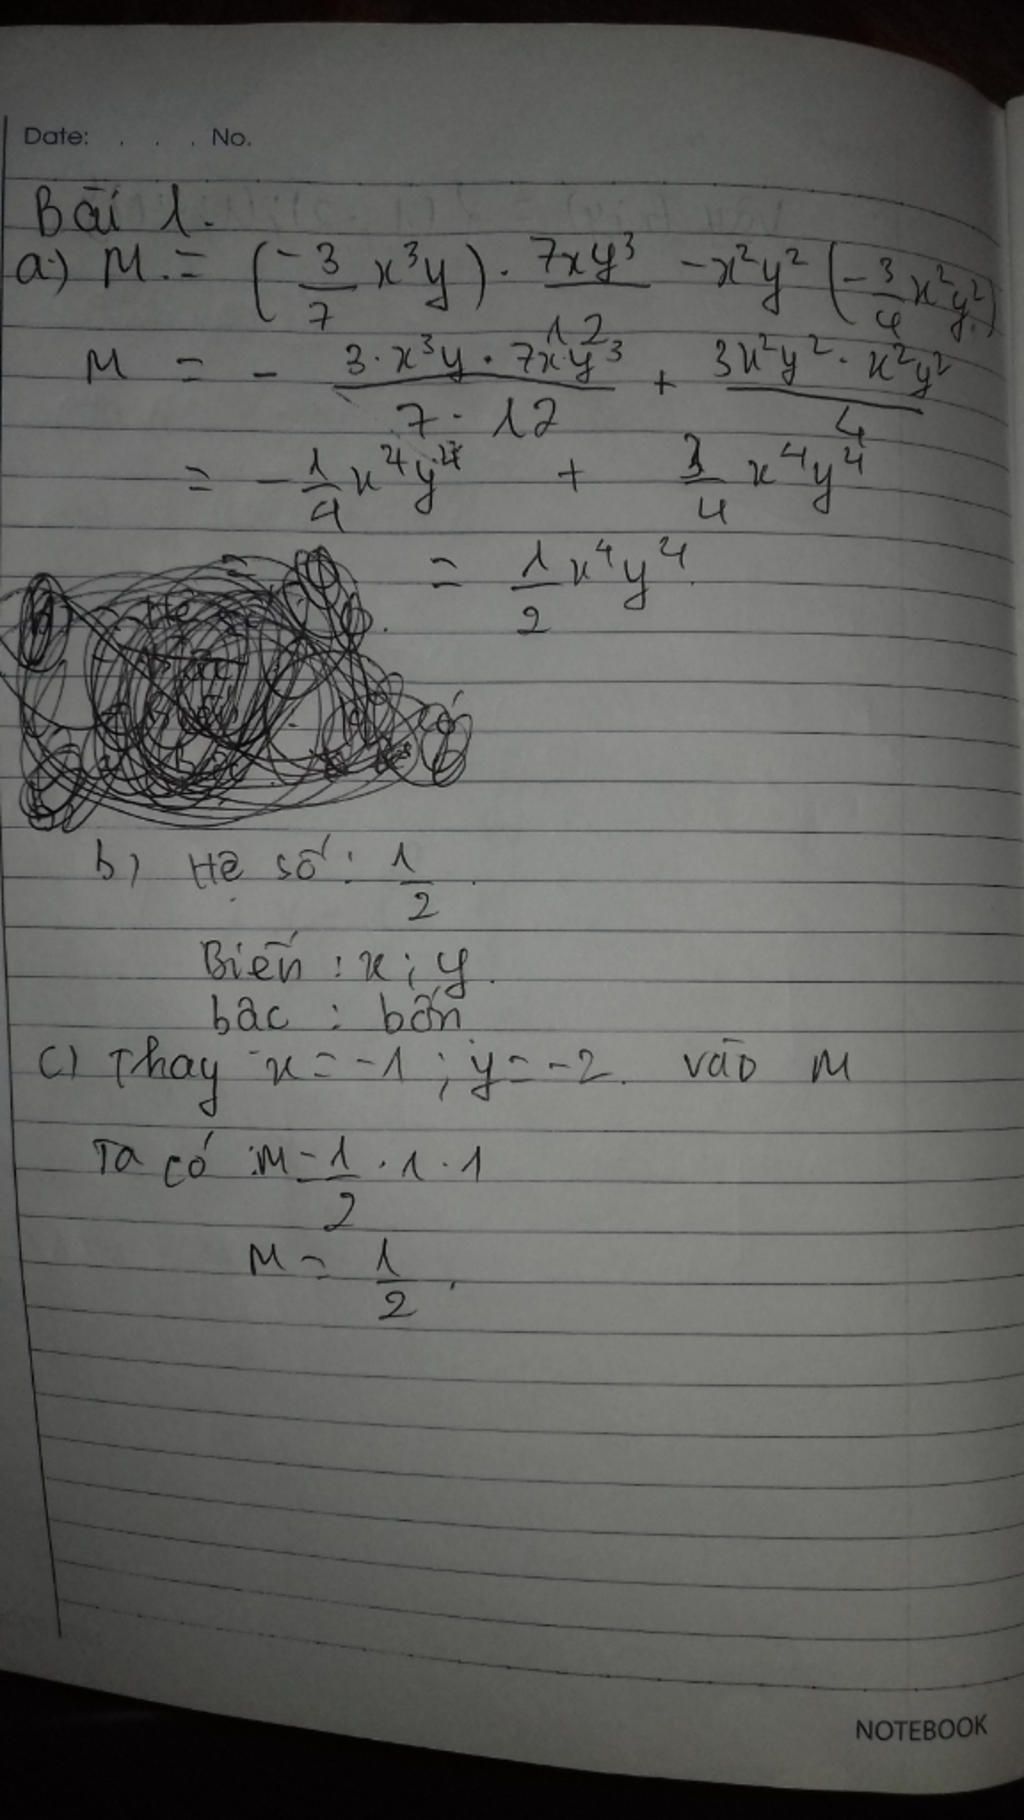 Date: . . . No.
Bài 1.
a) M = (-3/7 x³y) . 7xy³/12 - x²y² (-3/4 x²y²)
M = - 3.x³y . 7x.y³/7 . 12 + 3x²y² . x²y²/4
= - 1/4 x⁴y⁴ + 3/4 x⁴y⁴
= 1/2 x⁴y⁴
b) Hệ số : 1/2 .
Biến : x ; y .
bâc : bốn
c) Thay x = -1 ; y = -2 . vào M
Ta có : M = 1/2 . 1 . 1
M = 1/2 .
NOTEBOOK